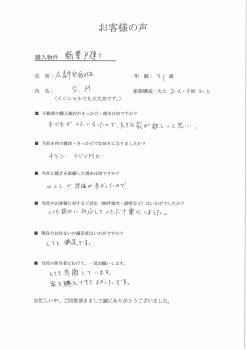 お客様の声
購入物件 新築戸建て
住 所： 年 齢：31歳
氏 名： S.M 家族構成：大人 2人・子供 2人
（イニシャルでも大丈夫です。）
■ 不動産の購入のきっかけ・理由は何ですか？
子どもが2人になったので、大きな家が欲しいと思い、
■ 当社を何の媒体・きっかけでお知りになりましたか？
チラシ・SUUMO
■ 当社に仲介を依頼した理由は何ですか？
口コミで評価が良かったので
■ 当社のお客様に対するご対応（物件案内・説明など）はいかがでしたか？
とても親切に対応していただき楽にしました。
■ 現在のお住まいの満足度はいかがですか？
とても満足です。
■ 当社の担当者にむけて、一言お願いします。
とても感謝しています。
家を購入できて良かったです。
お忙しい中、ご回答頂きまして誠にありがとうございました。